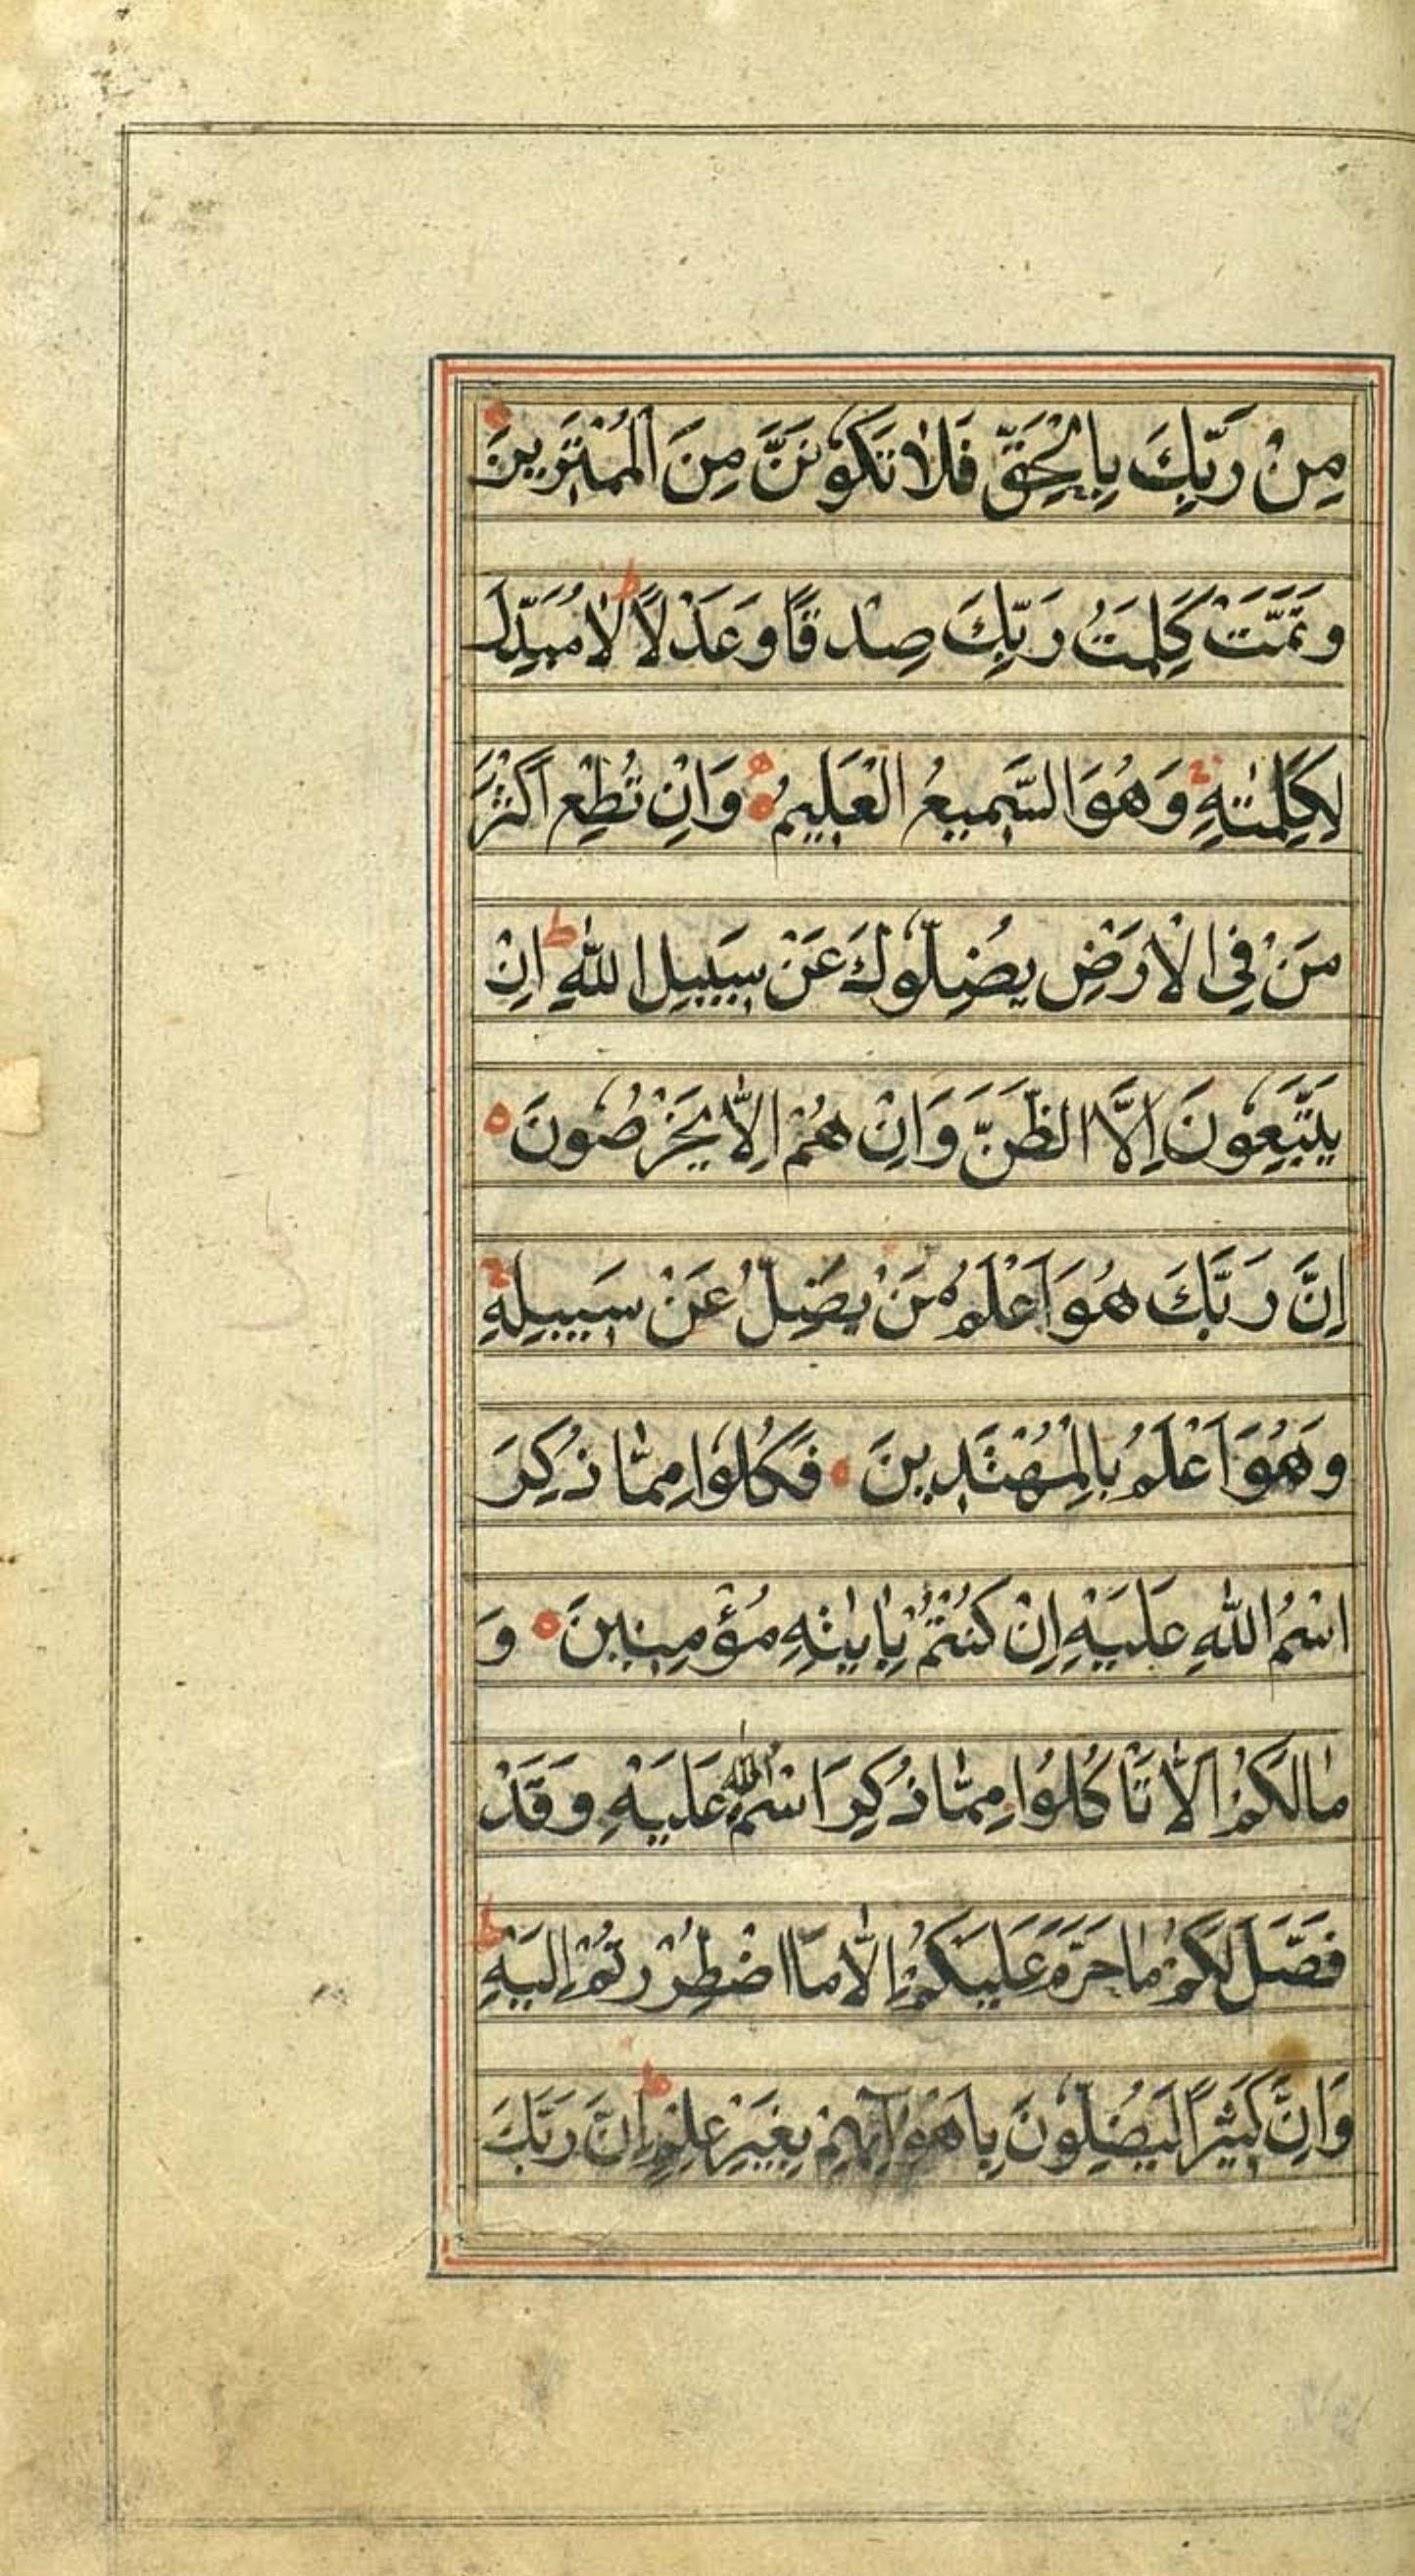 مِنْ رَبِّكَ بِالْحَقِّ فَلَا تَكُوْنَنَّ مِنَ الْمُمْتَرِينَ
وَتَمَّتْ كَلِمَتُ رَبِّكَ صِدْقًا وَعَدْلًا ط لَا مُبَدِّلَ
لِكَلِمٰتِهِ ج وَهُوَ السَّمِيعُ الْعَلِيمُ وَاِنْ تُطِعْ اَكْثَرَ
مَنْ فِي الْاَرْضِ يُضِلُّوْكَ عَنْ سَبِيلِ اللّٰهِ ط اِنْ
يَتَّبِعُوْنَ اِلَّا الظَّنَّ وَاِنْ هُمْ اِلَّا يَخْرُصُوْنَ
اِنَّ رَبَّكَ هُوَ اَعْلَمُ مَنْ يَضِلُّ عَنْ سَبِيلِهِ ج
وَهُوَ اَعْلَمُ بِالْمُهْتَدِينَ فَكُلُوْا مِمَّا ذُكِرَ
اسْمُ اللّٰهِ عَلَيْهِ اِنْ كُنْتُمْ بِاٰيٰتِهِ مُؤْمِنِينَ وَ
مَالَكُمْ اَلَّا تَاْكُلُوْا مِمَّا ذُكِرَ اسْمُ اللّٰهِ عَلَيْهِ وَقَدْ
فَصَّلَ لَكُمْ مَا حَرَّمَ عَلَيْكُمْ اِلَّا مَا اضْطُرِرْتُمْ اِلَيْهِ ط
وَاِنَّ كَثِيْرًا لَيُضِلُّوْنَ بِاَهْوَآئِهِمْ بِغَيْرِ عِلْمٍ ط اِنَّ رَبَّكَ